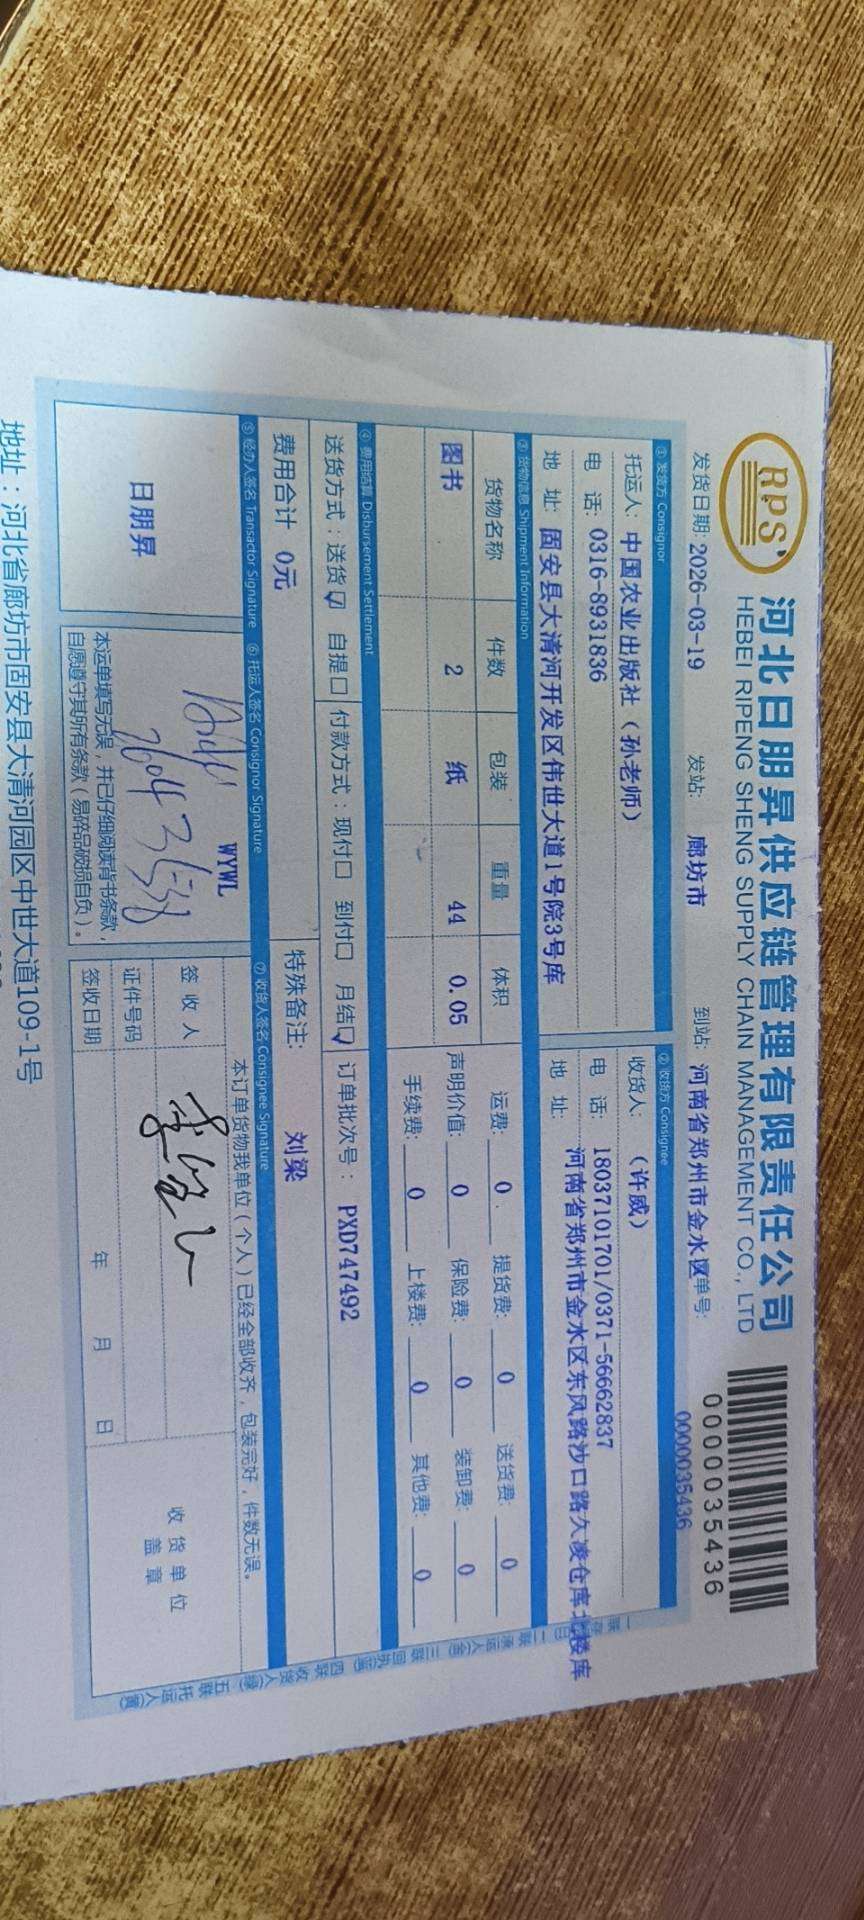 RPS
河北日朋昇供应链管理有限责任公司
HEBEI RIPENG SHENG SUPPLY CHAIN MANAGEMENT CO., LTD
0000035436
发货日期: 2026-03-19 发站: 廊坊市 到站: 河南省郑州市金水区 单号: 0000035436
① 发货方 Consignor ② 收货方 Consignee
托运人: 中国农业出版社 (孙老师) 收货人: (许威)
电 话: 0316-8931836 电 话: 18037101701/0371-56662837
地 址: 固安县大清河开发区伟世大道1号院3号库 地 址: 河南省郑州市金水区东风路沙口路久凌仓库北楼库
③ 货物信息 Shipment Information
货物名称 件数 包装 重量 体积 运费: 0 提货费: 0 送货费: 0
图书 2 纸 44 0.05 声明价值: 0 保险费: 0 装卸费: 0
手续费: 0 上楼费: 0 其他费: 0
④ 费用结算 Disbursement Settlement
送货方式: 送货☑ 自提☐ 付款方式: 现付☐ 到付☐ 月结☑ 订单批次号: PXD747492
费用合计 0元 特殊备注: 刘梁
⑤ 经办人签名 Transactor Signature ⑥ 托运人签名 Consignor Signature ⑦ 收货人签名 Consignee Signature
日朋昇 WYWL 本订单货物我单位(个人)已经全部收齐,包装完好,件数无误。
签 收 人
证件号码
签收日期 年 月 日
收货单位
盖章
本运单填写无误,并已仔细阅读背书条款,
自愿遵守其所有条款(易碎品破损自负)。
地址:河北省廊坊市固安县大清河园区中世大道109-1号